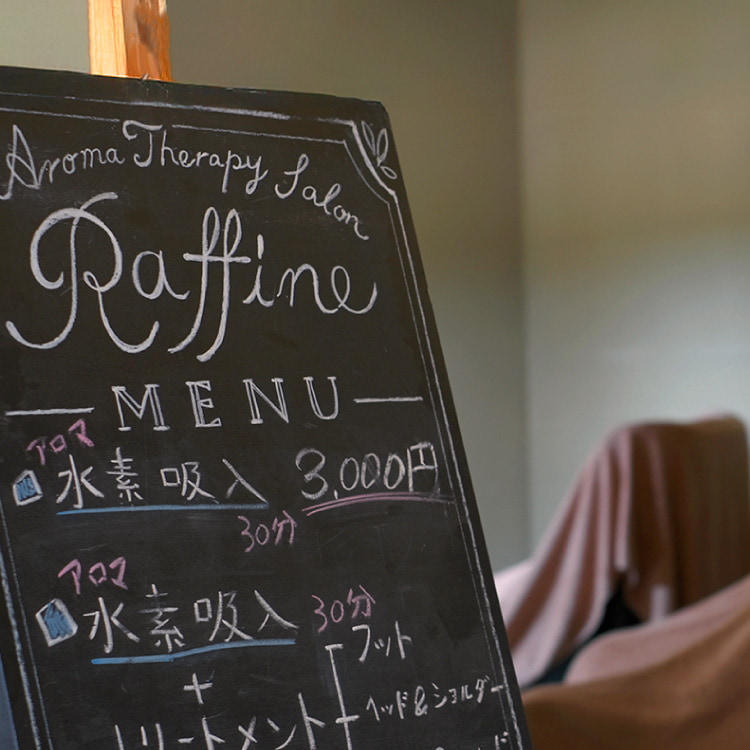 Aroma Therapy Salon
Raffine
MENU
アロマ
水素吸入 3,000円
30分
アロマ
水素吸入 30分
フット
+
ヘッド&ショルダー
トリートメント